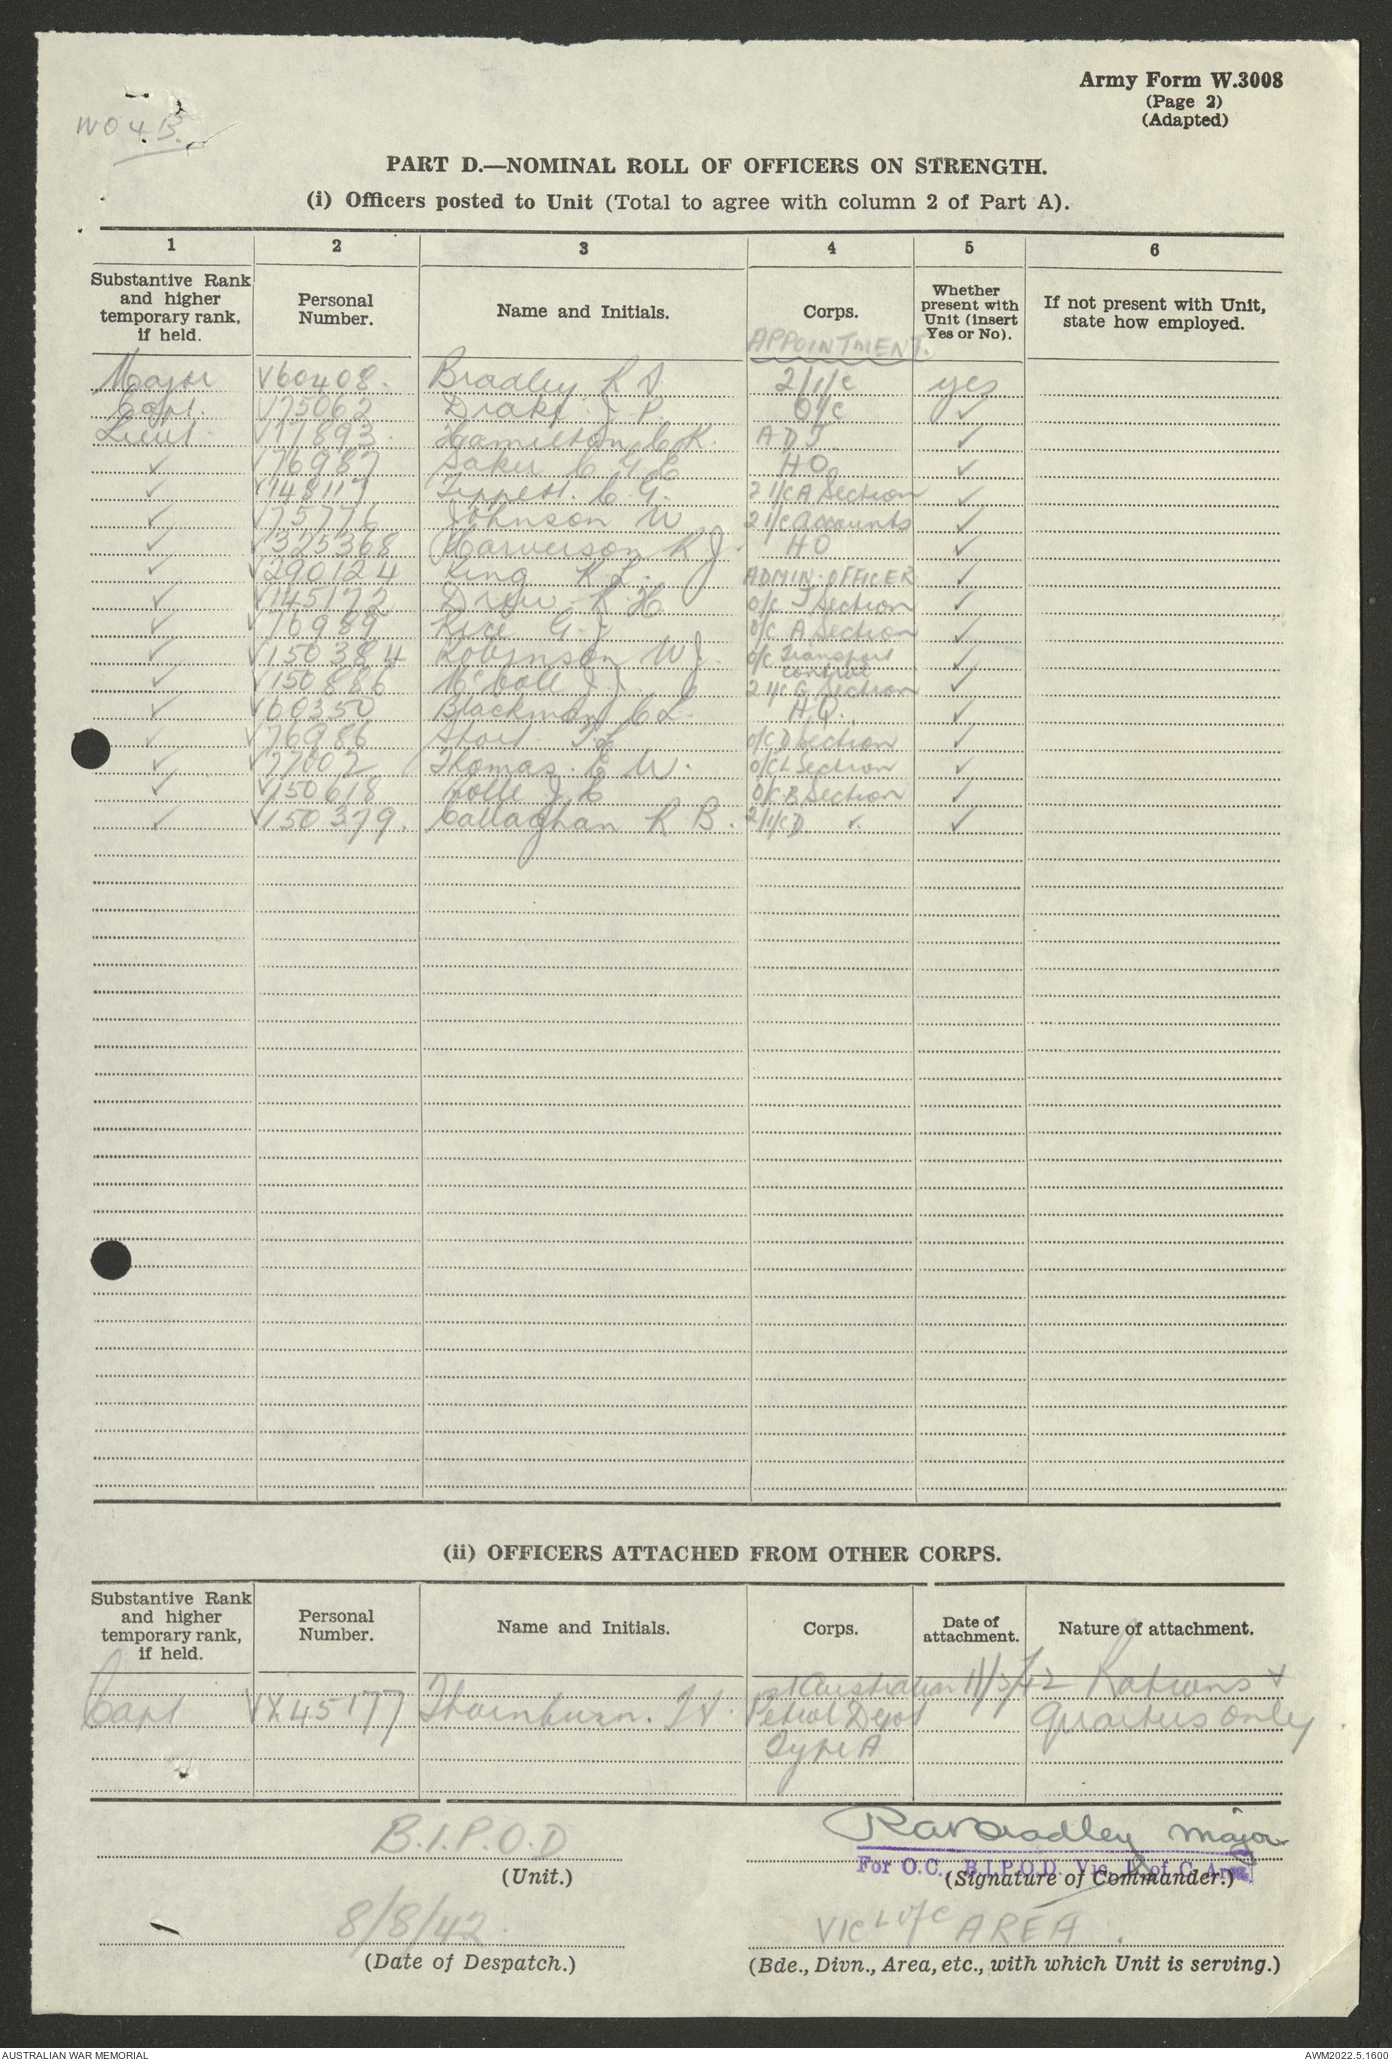 Army Form W.3008
(Page 2)
(Adapted)
WO 4 B.
PART D.—NOMINAL ROLL OF OFFICERS ON STRENGTH.
(i) Officers posted to Unit (Total to agree with column 2 of Part A).
1 2 3 4 5 6
Substantive Rank and higher temporary rank, if held.
Personal Number.
Name and Initials.
Corps.
APPOINTMENT.
Whether present with Unit (insert Yes or No).
If not present with Unit, state how employed.
Major V60408. Bradley R A 2/I/C yes
Capt. V75062 Drake. J P. O/C ✓
Lieut. V17893. Hamilton C K. ADJ ✓
✓ V76987 Baker C G E HQ ✓
✓ V148117 Tippett. C. G. 2 I/C A Section ✓
✓ V75776 Johnson W 2 I/C Accounts ✓
✓ V325368 Harverson K J. HQ ✓
✓ V290124 King R L. ADMIN. OFFICER ✓
✓ V145172 Drew R H O/C J Section ✓
✓ V76989 Rice G. J O/C A Section ✓
✓ V150384 Robinson W J. O/C Transport control ✓
✓ V150886 McCole J. J. 2 I/C G Section ✓
✓ V60350 Blackman C L. H.Q. ✓
✓ V76986 O/C D Section ✓
✓ V77002 Thomas. E W. O/C L Section ✓
✓ V150618 Colle J C O/C B Section ✓
✓ V150379. Callaghan R B. 2/I/C D ✓ ✓
(ii) OFFICERS ATTACHED FROM OTHER CORPS.
Substantive Rank and higher temporary rank, if held.
Personal Number.
Name and Initials.
Corps.
Date of attachment.
Nature of attachment.
Capt VX45177 Thornburn. 1st Australian Petrol Depot Type A 11/3/42 Rations & Quarters only
B.I.P.O.D
(Unit.)
RA Bradley Major
For O.C. B.I.P.O.D. Vic. L of C. Area
(Signature of Commander.)
8/8/42.
(Date of Despatch.)
VIC L of C AREA.
(Bde., Divn., Area, etc., with which Unit is serving.)
AUSTRALIAN WAR MEMORIAL
AWM2022.5.1600